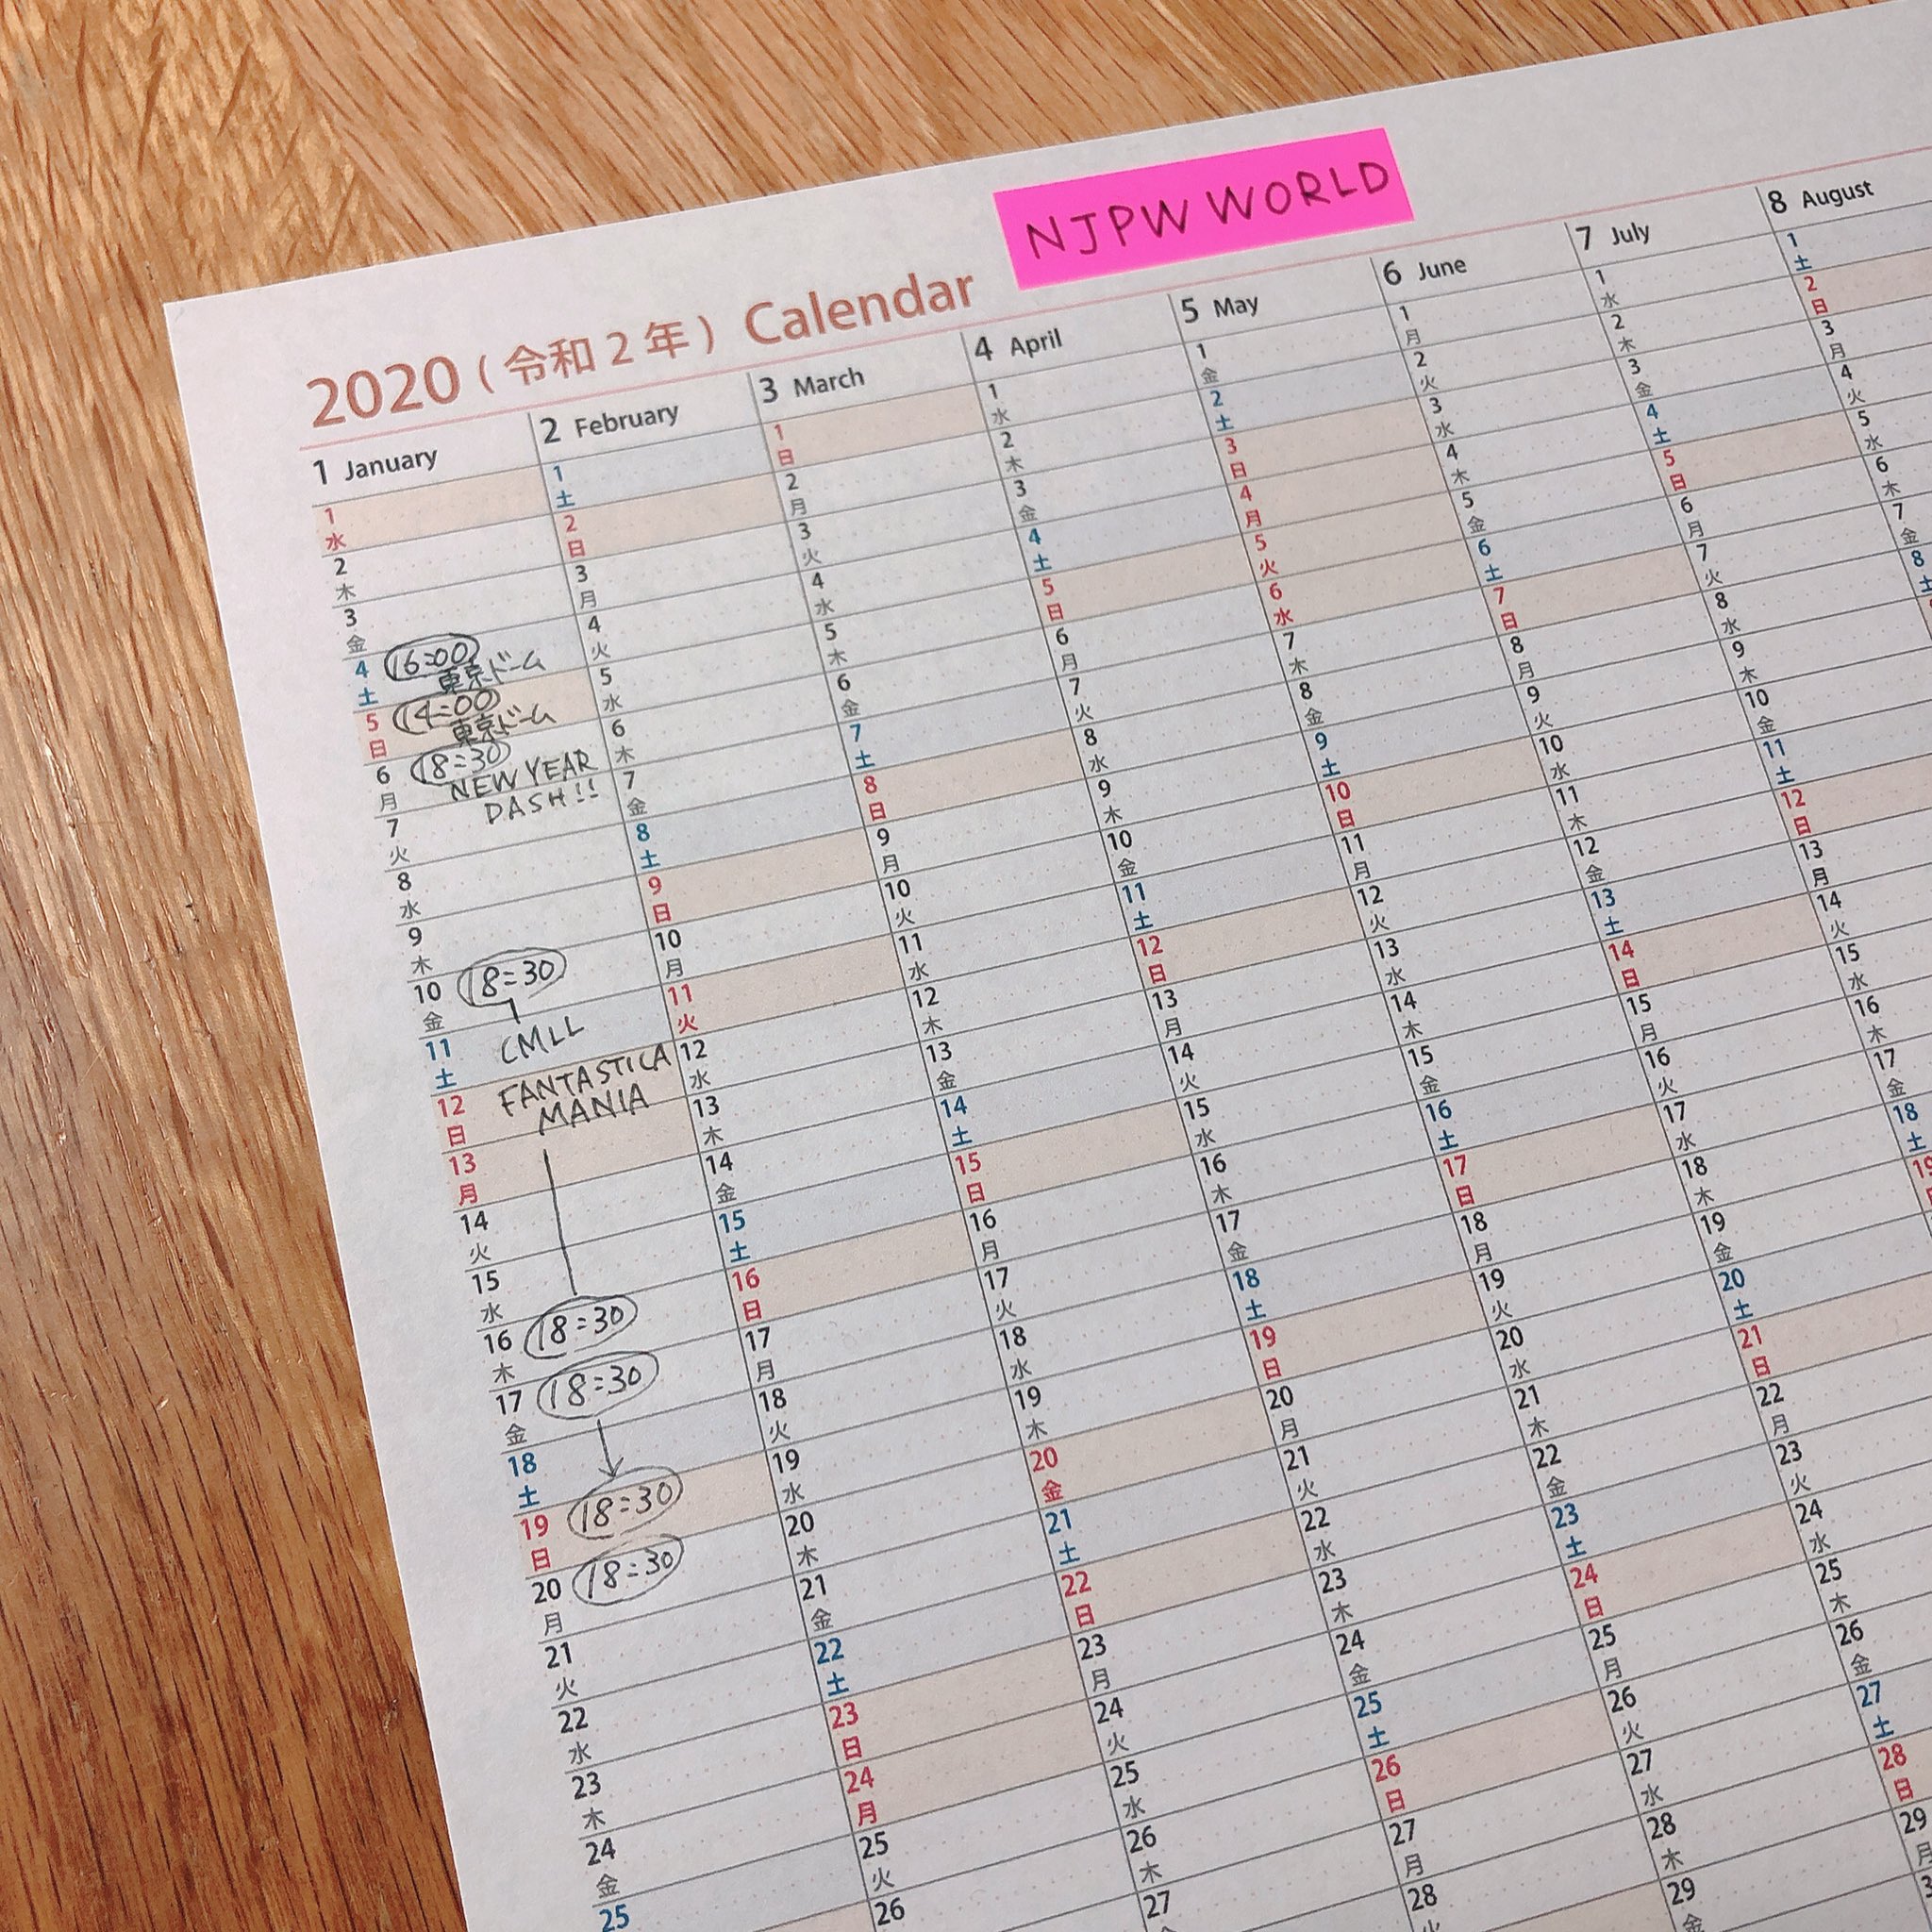 NJPW WORLD
2020 (令和2年) Calendar
1 January
1
水
2
木
3
金
4
土
16:00
東京ドーム
5
日
14:00
東京ドーム
6
月
18:30
NEW YEAR
DASH!!
7
火
8
水
9
木
10
金
18:30
CMLL
FANTASTICA
MANIA
11
土
12
日
13
月
14
火
15
水
16
木
18:30
17
金
18:30
18
土
19
日
18:30
20
月
18:30
21
火
22
水
23
木
24
金
25
2 February
1
土
2
日
3
月
4
火
5
水
6
木
7
金
8
土
9
日
10
月
11
火
12
水
13
木
14
金
15
土
16
日
17
月
18
火
19
水
20
木
21
金
22
土
23
日
24
月
25
火
26
3 March
1
日
2
月
3
火
4
水
5
木
6
金
7
土
8
日
9
月
10
火
11
水
12
木
13
金
14
土
15
日
16
月
17
火
18
水
19
木
20
金
21
土
22
日
23
月
24
火
25
水
26
木
27
4 April
1
水
2
木
3
金
4
土
5
日
6
月
7
火
8
水
9
木
10
金
11
土
12
日
13
月
14
火
15
水
16
木
17
金
18
土
19
日
20
月
21
火
22
水
23
木
24
金
25
土
26
日
27
月
28
火
5 May
1
金
2
土
3
日
4
月
5
火
6
水
7
木
8
金
9
土
10
日
11
月
12
火
13
水
14
木
15
金
16
土
17
日
18
月
19
火
20
水
21
木
22
金
23
土
24
日
25
月
26
火
27
水
28
木
29
金
6 June
1
月
2
火
3
水
4
木
5
金
6
土
7
日
8
月
9
火
10
水
11
木
12
金
13
土
14
日
15
月
16
火
17
水
18
木
19
金
20
土
21
日
22
月
23
火
24
水
25
木
26
金
27
土
28
日
29
月
7 July
1
水
2
木
3
金
4
土
5
日
6
月
7
火
8
水
9
木
10
金
11
土
12
日
13
月
14
火
15
水
16
木
17
金
18
土
19
8 August
1
土
2
日
3
月
4
火
5
水
6
木
7
金
8
土